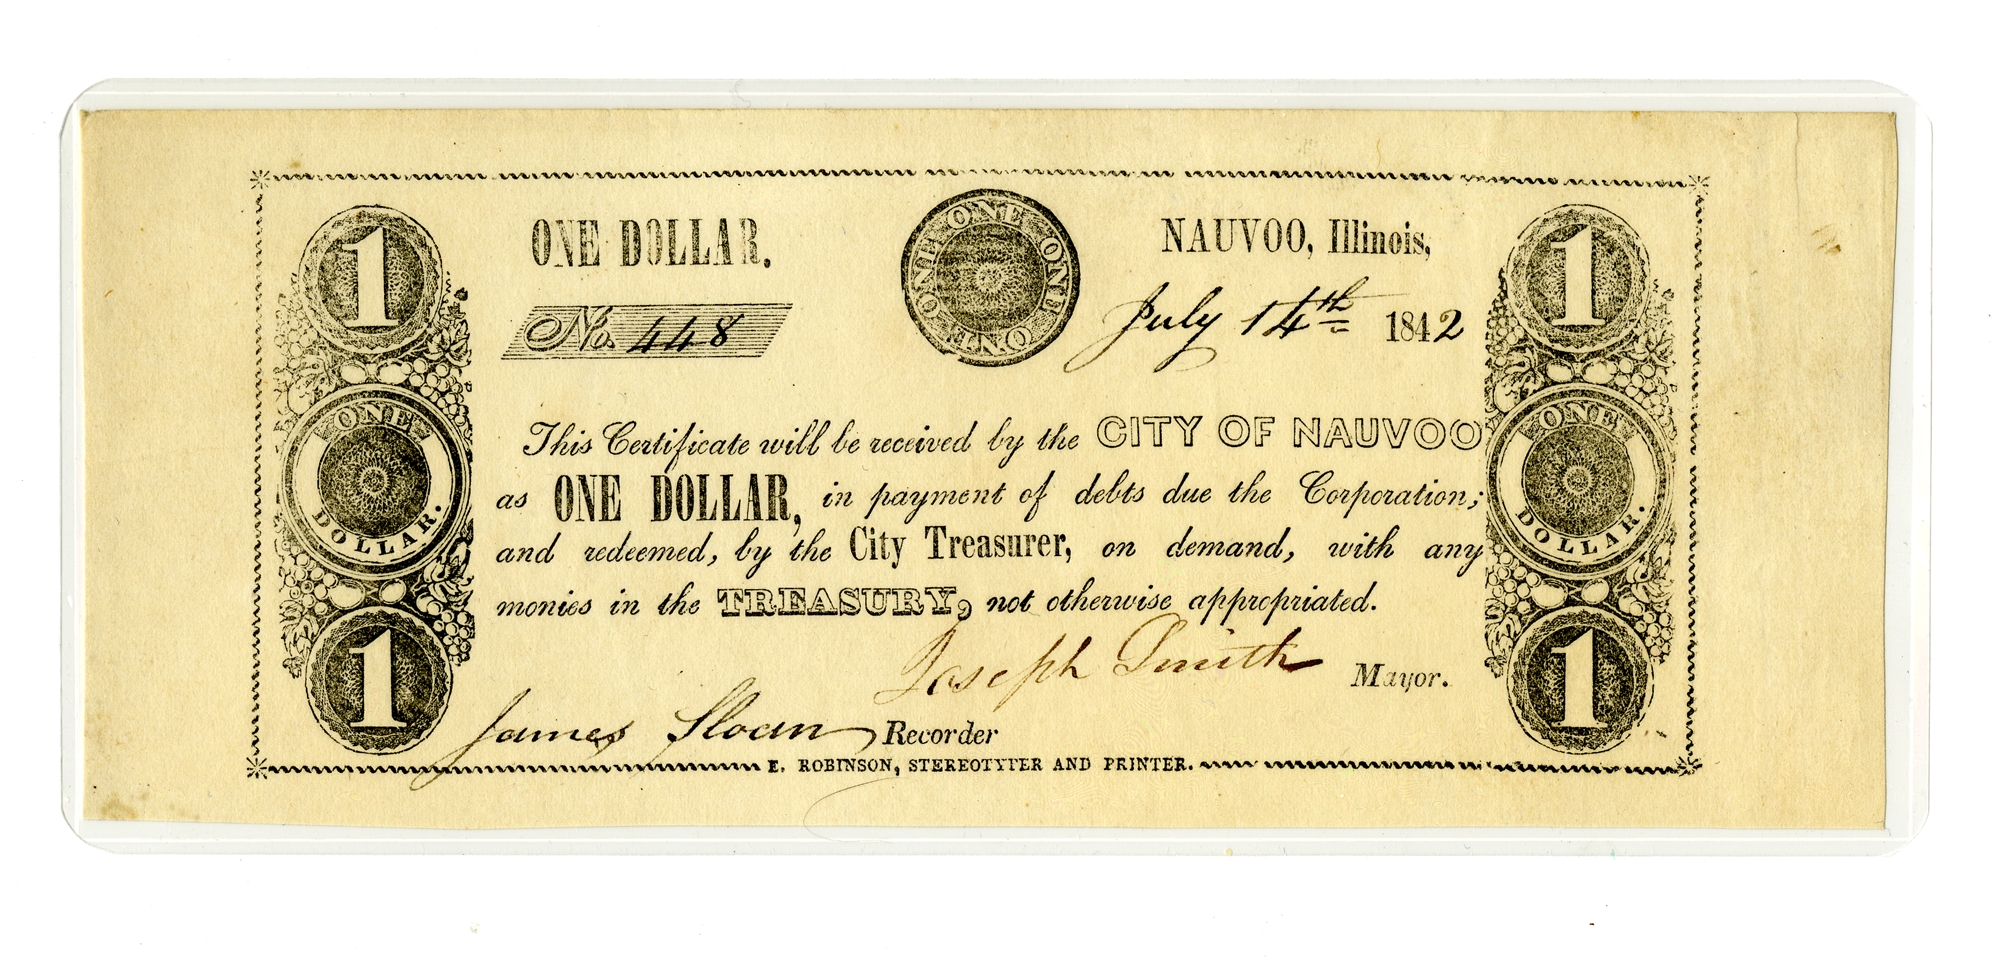 1
ONE DOLLAR.
ONE ONE ONE ONE ONE ONE
NAUVOO, Illinois,
1
No. 448
July 14th 1842
ONE
DOLLAR.
This Certificate will be received by the CITY OF NAUVOO
as ONE DOLLAR, in payment of debts due the Corporation;
and redeemed, by the City Treasurer, on demand, with any
monies in the TREASURY, not otherwise appropriated.
ONE
DOLLAR.
1
Joseph Smith Mayor.
James Sloan Recorder
1
E. ROBINSON, STEREOTYPER AND PRINTER.